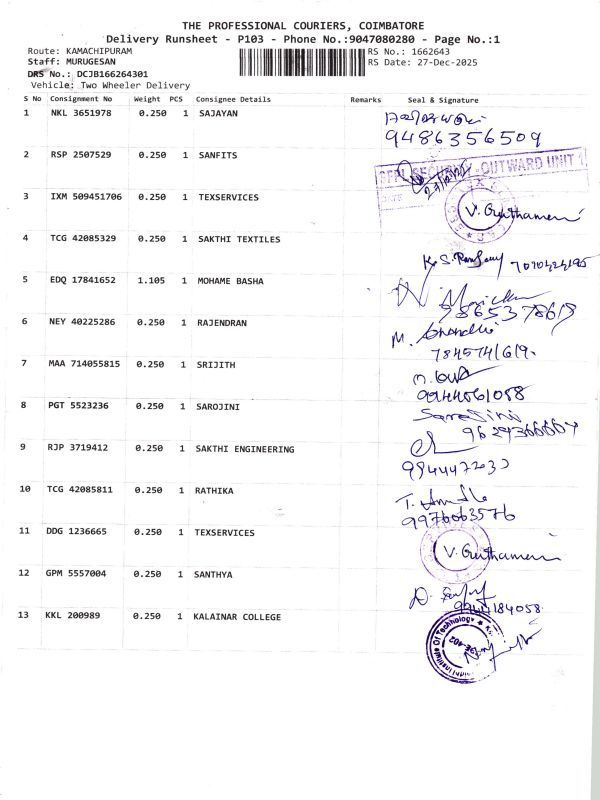 THE PROFESSIONAL COURIERS, COIMBATORE
Delivery Runsheet - P103 - Phone No.:9047080280 - Page No.:1
Route: KAMACHIPURAM RS No.: 1662643
Staff: MURUGESAN RS Date: 27-Dec-2025
DRS No.: DCJB166264301
Vehicle: Two Wheeler Delivery
S No Consignment No Weight PCS Consignee Details Remarks Seal & Signature
1 NKL 3651978 0.250 1 SAJAYAN
9486356509
2 RSP 2507529 0.250 1 SANFITS
SECURITY - OUTWARD UNIT 1
DATE
3 IXM 509451706 0.250 1 TEXSERVICES
V. Guthamani
4 TCG 42085329 0.250 1 SAKTHI TEXTILES
K. S.
5 EDQ 17841652 1.105 1 MOHAME BASHA
6 NEY 40225286 0.250 1 RAJENDRAN
M.
7 MAA 714055815 0.250 1 SRIJITH
9944061058
8 PGT 5523236 0.250 1 SAROJINI
Sarojini
9 RJP 3719412 0.250 1 SAKTHI ENGINEERING
10 TCG 42085811 0.250 1 RATHIKA
T.
9976063576
11 DDG 1236665 0.250 1 TEXSERVICES
V. Guthamani
12 GPM 5557004 0.250 1 SANTHYA
D.
13 KKL 200989 0.250 1 KALAINAR COLLEGE
Institute Of Technology